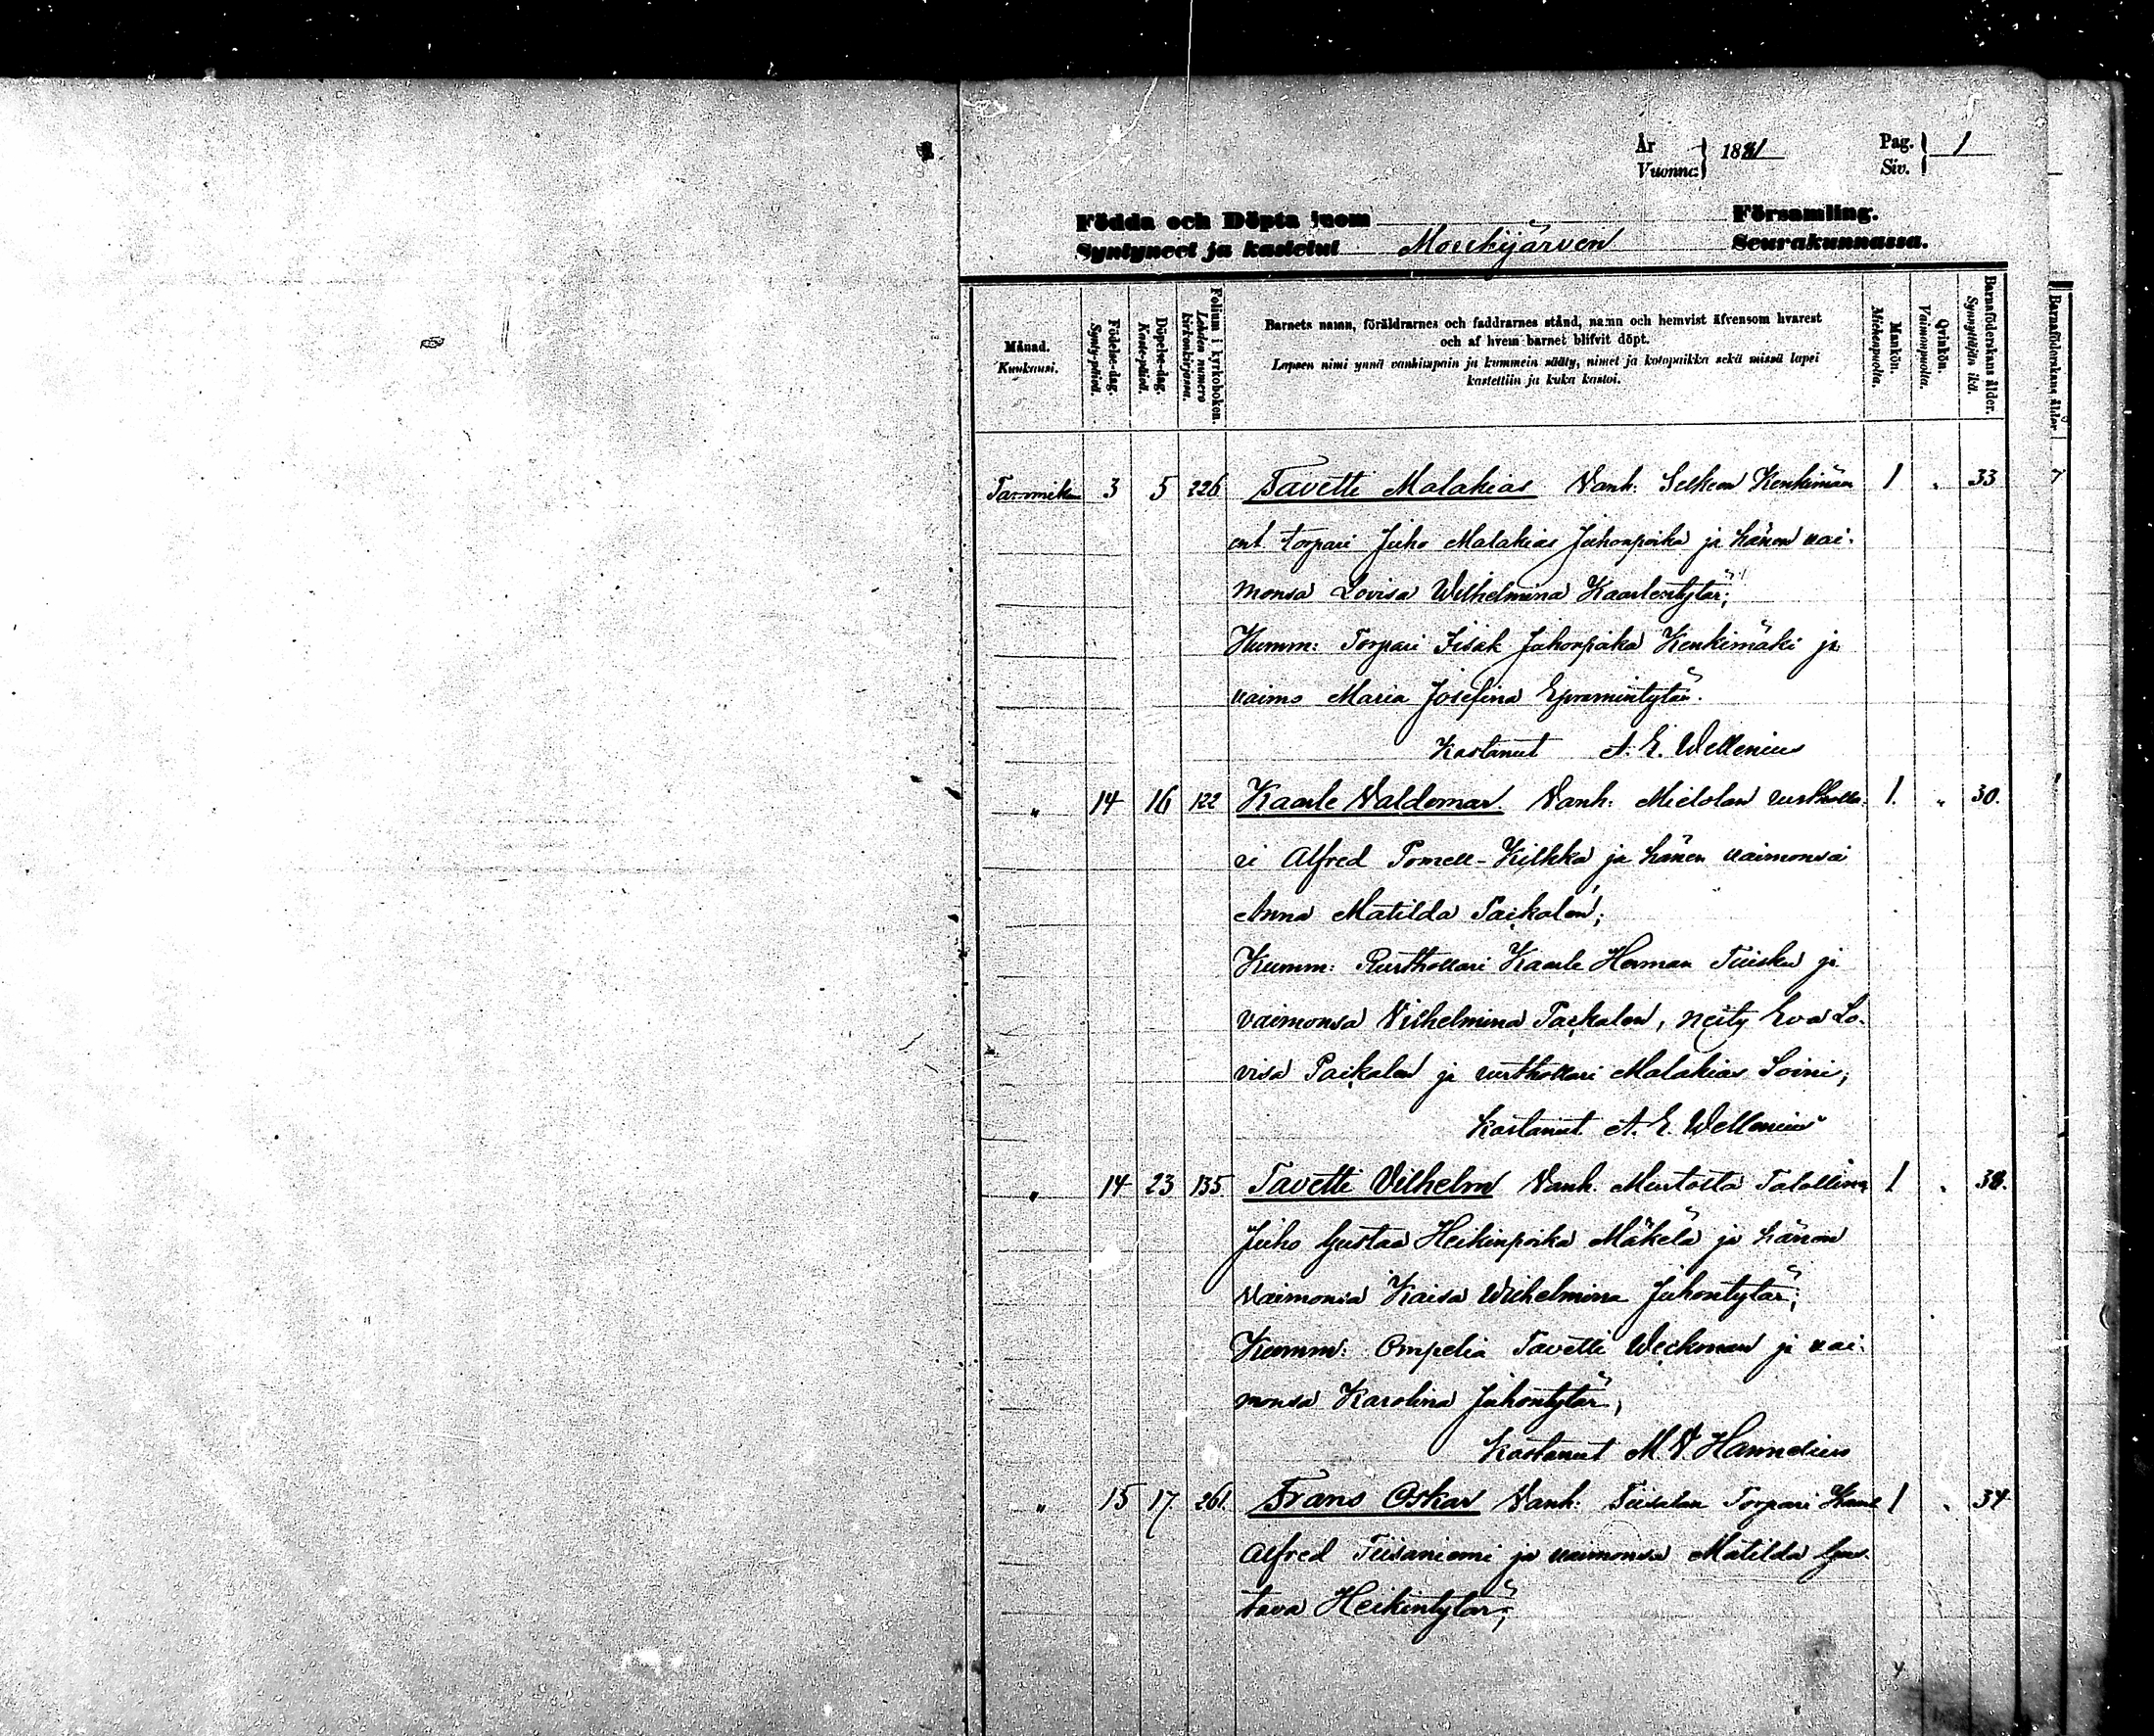 År
Vuonna
1881
Pag.
Siv.
1
Födda och Döpta inom Församling.
Syntyneet ja kastetut Mouhijärven Seurakunnassa.
Månad.
Kuukausi.
Födelse-dag.
Synty-päivä.
Döpelse-dag.
Kaste-päivä.
Folium i kyrkoboken.
Lehden numero kirkonkirjassa.
Barnets namn, föräldrarnes och faddrarnes stånd, namn och hemvist äfvensom hvarest
och af hvem barnet blifvit döpt.
Lapsen nimi ynnä vanhimpain ja kummein sääty, nimet ja kotopaikka sekä missä lapsi
kastettiin ja kuka kastoi.
Mankön.
Miehenpuolta.
Qvinkön.
Vaimonpuolta.
Barnaföderskans ålder.
Synnyttäjän ikä.
Barnaföderskans ålder
Tammik. 3 5 226 Tavetti Malakias Vanh. Selkeen Kenkimäen 1 . 33
ent. torpari Juho Malakias Juhonpoika ja hänen vai-
monsa Lovisa Wilhelmina Kaarlentytär;
Kumm: Torpari Iisak Juhonpoika Kenkimäki ja
vaimo Maria Josefina Epramintytär.
Kastanut A. E. Wellenius
" 14 16 122 Kaarle Valdemar. Vanh: Mielolan rustholla- 1. " 30.
ri Alfred Tomell-Kilkka ja hänen vaimonsa
Anna Matilda Paikalen;
Kumm: Rusthollari Kaarle Herman Tuisku ja
vaimonsa Vilhelmina Paikalen, neity Eva Lo-
visa Paikalen ja rusthollari Malakias Soini;
Kastanut A. E. Wellenius
" 14 23 135. Tavetti Vilhelm Vanh. Talollinen 1. . 38.
Juho Gustaa Heikinpoika Mäkelä ja hänen
vaimonsa Kaisa Wilhelmina Juhontytär;
Kumm: Ompelia Tavetti Weckman ja vai-
monsa Karolina Juhontytär;
Kastanut M. V. Hannelius
" 15 17 261. Frans Oskar Vanh: Tiisalan Torpari Kaarle 1 . 34
Alfred Tiisaniemi ja vaimonsa Matilda Gus-
tava Heikintytär;